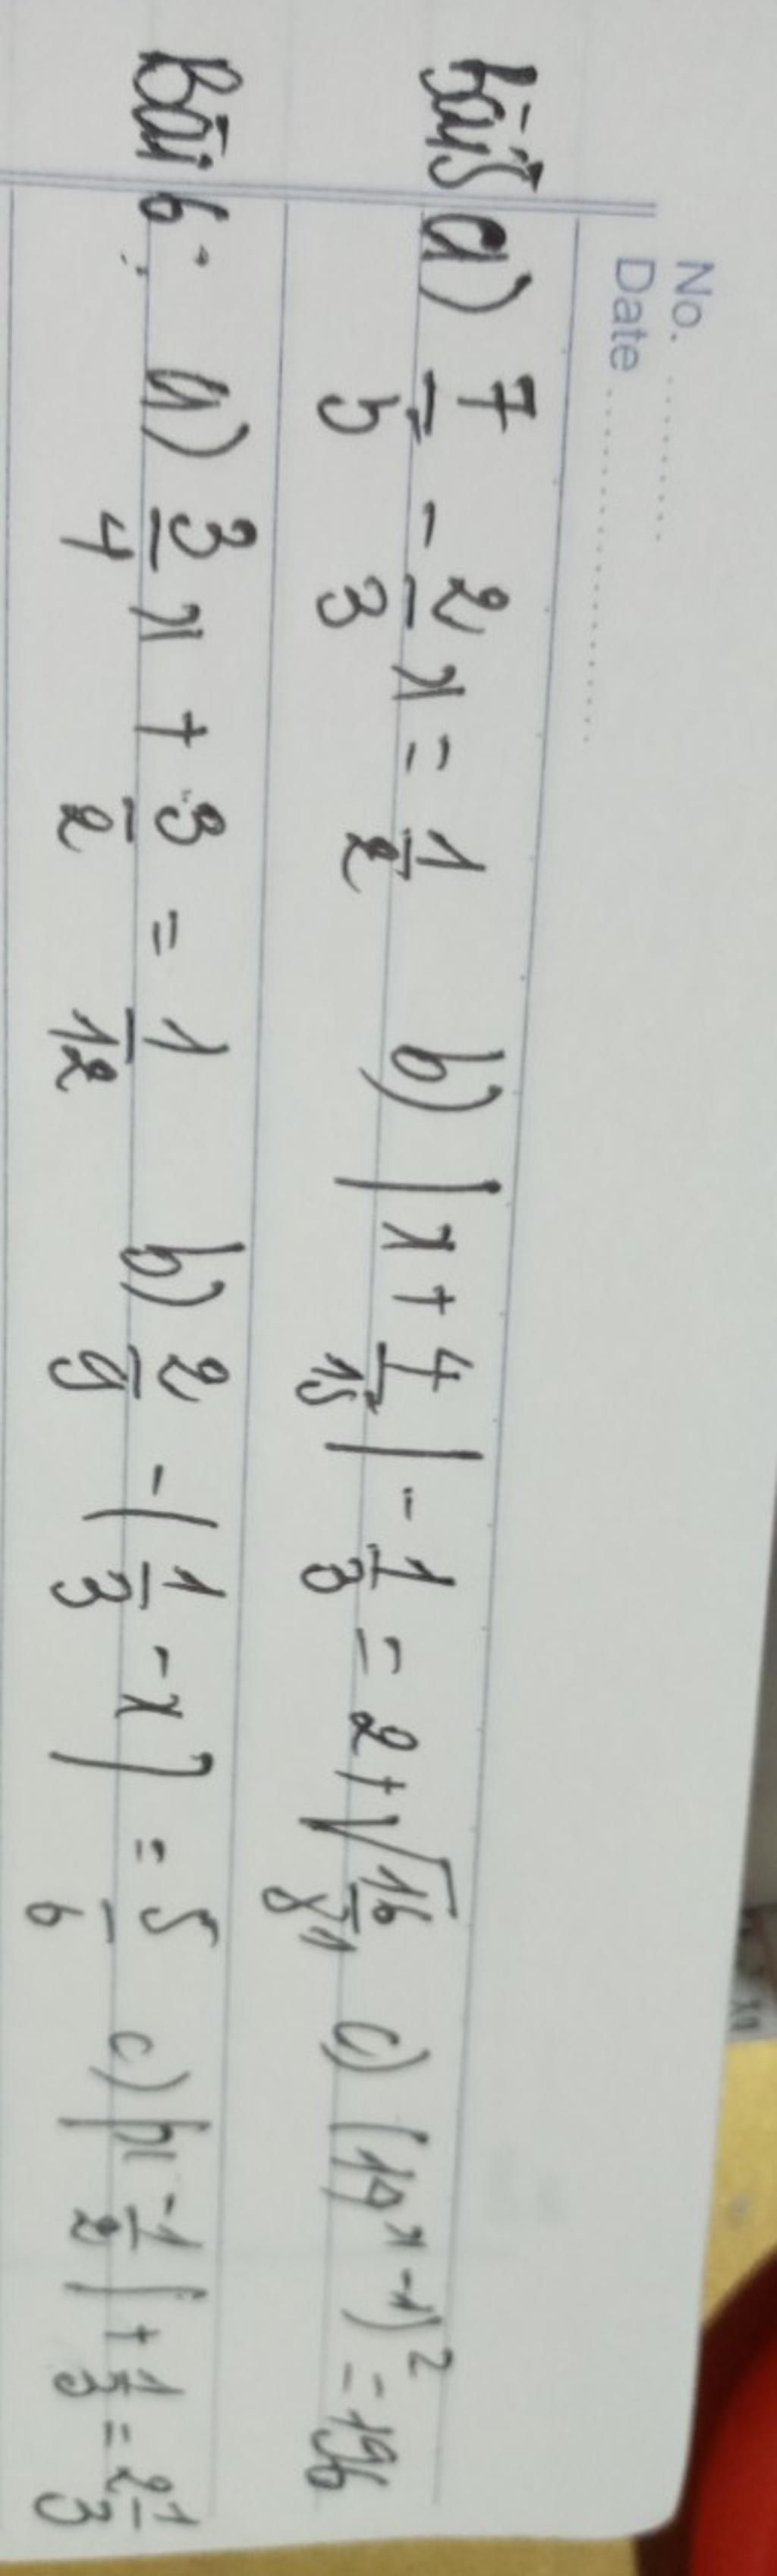 No. ............
Date ........................
Bài 5 a) 7/5 - 2/3 x = 1/2 b) |x + 4/15| - 1/3 = 2 + √(16/81) c) (14x - 1)² = 196
Bài 6: a) 3/4 x + 3/2 = 1/12 b) 2/9 - (1/3 - x) = 5/6 c) |x - 1/2| + 1/3 = 2 1/3